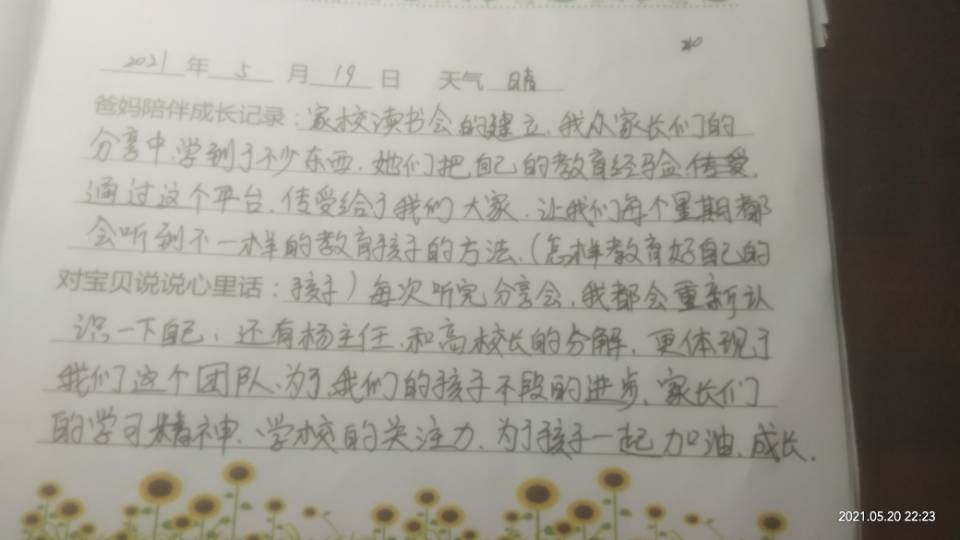 2021年5月19日 天气 晴
爸妈陪伴成长记录：家校读书会的建立，我从家长们的
分享中，学到了不少东西，她们把自己的教育经验传受，
通过这个平台，传受给了我们大家，让我们每个星期都
会听到不一样的教育孩子的方法，（怎样教育好自己的
对宝贝说说心里话：孩子）每次听完分享会，我都会重新认
识一下自己，还有杨主任，和高校长的分解，更体现了
我们这个团队，为了我们的孩子不段的进步，家长们
的学习精神，学校的关注力，为了孩子一起加油，成长．
2021.05.20 22:23